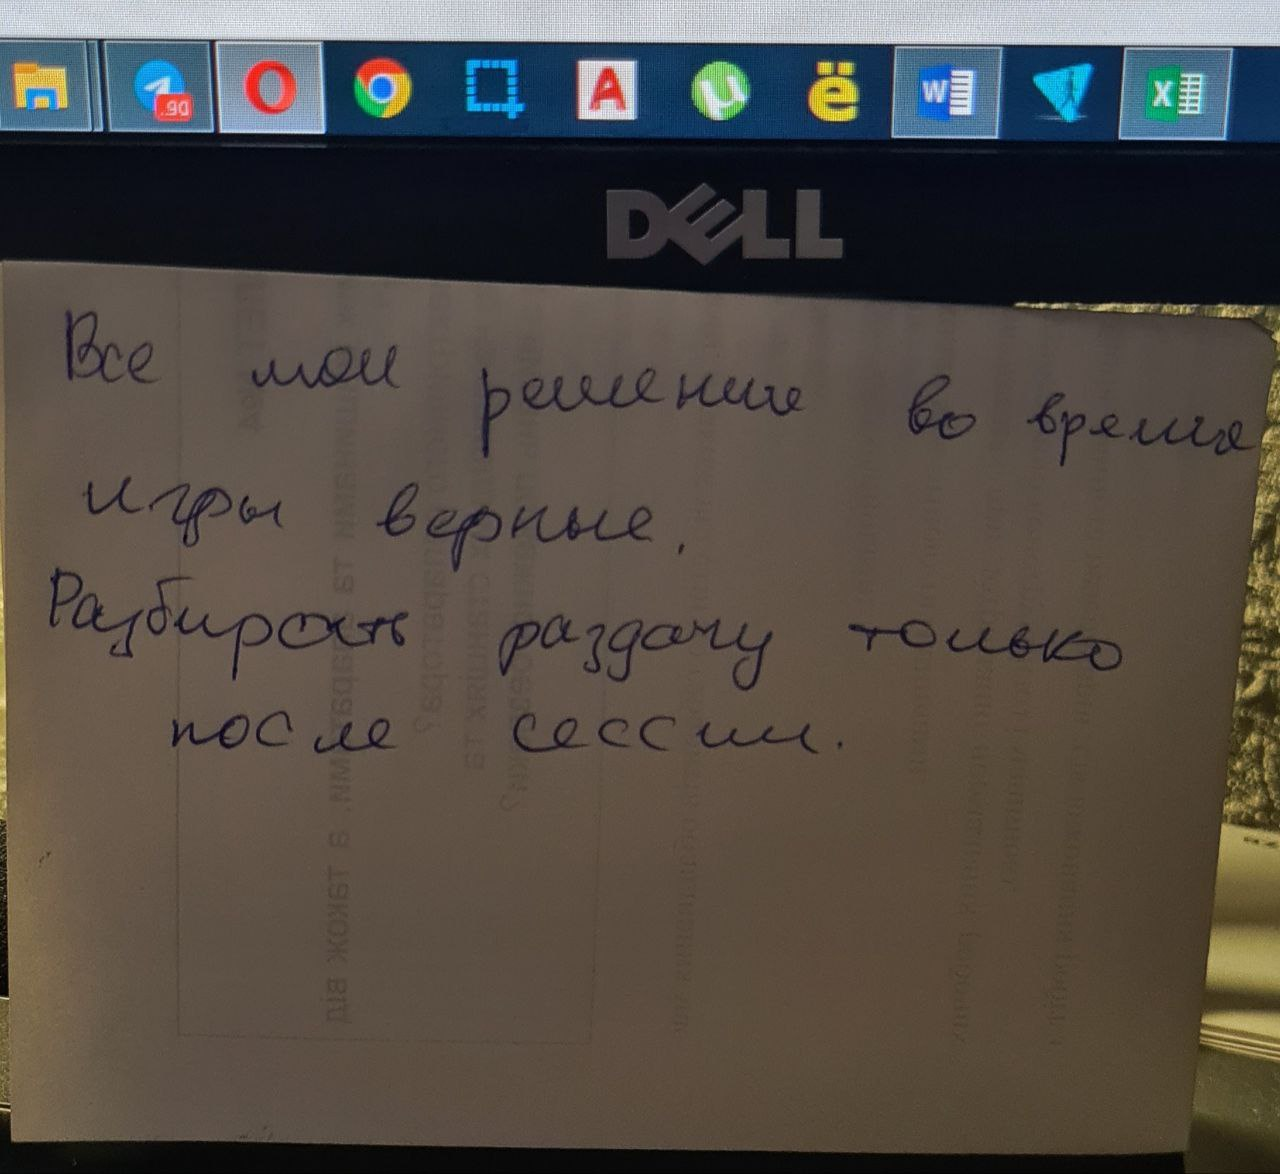 .90
A
µ
ё
W
X
DELL
Все мои решения во время
игры верные.
Разбирать раздачу только
после сессии.